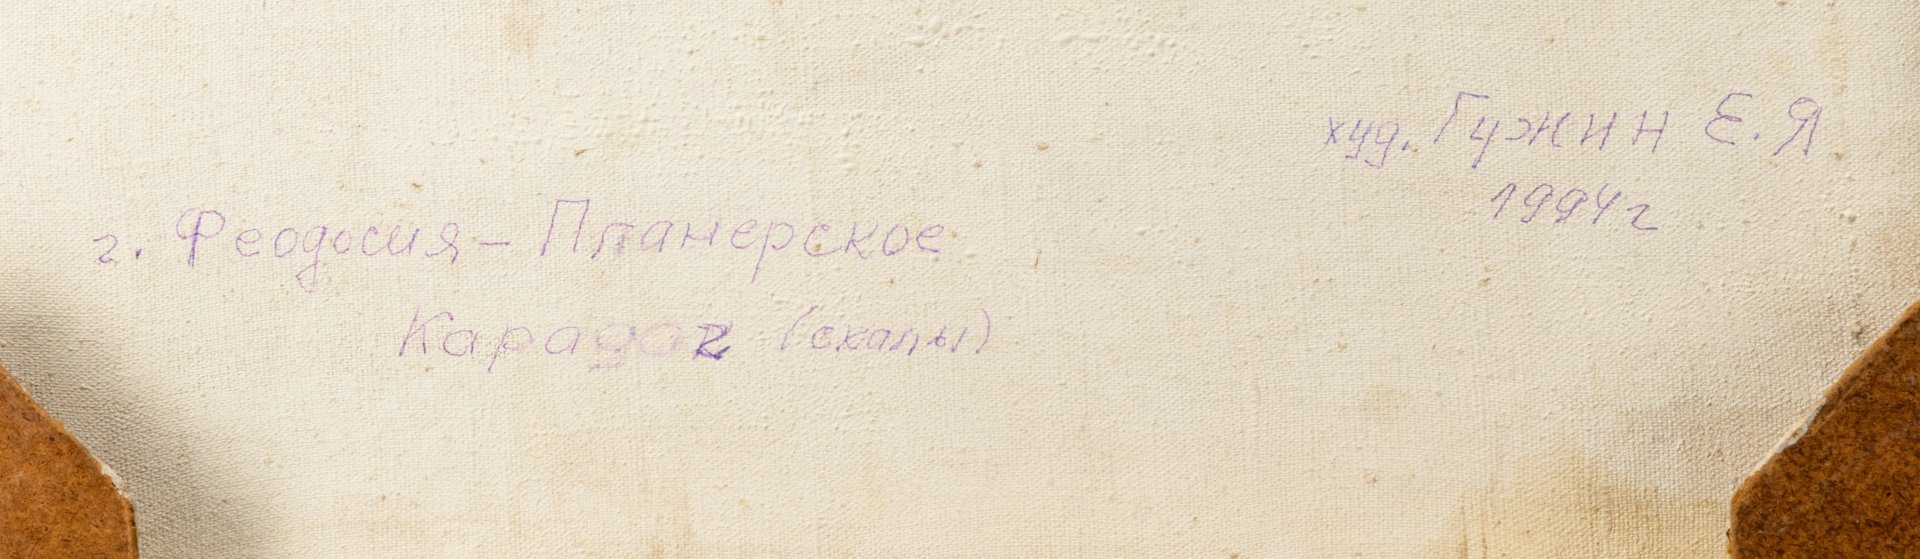 худ. Гужин Е.Я
1994г
г. Феодосия - Планерское
Карадаг (скалы)